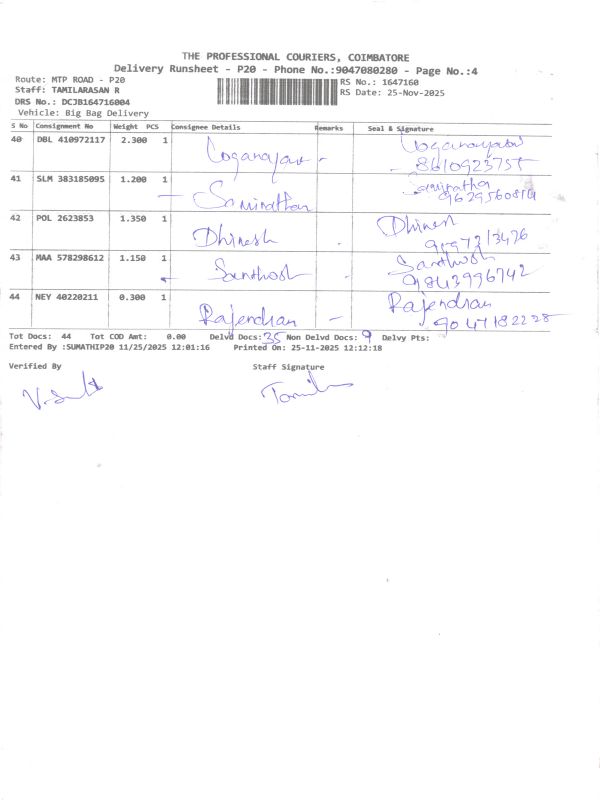 THE PROFESSIONAL COURIERS, COIMBATORE
Delivery Runsheet - P20 - Phone No.:9047080280 - Page No.:4
Route: MTP ROAD - P20 RS No.: 1647160
Staff: TAMILARASAN R RS Date: 25-Nov-2025
DRS No.: DCJB164716004
Vehicle: Big Bag Delivery
S No Consignment No Weight PCS Consignee Details Remarks Seal & Signature
40 DBL 410972117 2.300 1 Loganayaki - Loganayaki
8610923755
41 SLM 383185095 1.200 1 Samirathan Samiratha
9629560814
42 POL 2623853 1.350 1 Dhinesh - Dhinesh
43 MAA 578298612 1.150 1 Santhosh - Santhosh
9843996742
44 NEY 40220211 0.300 1 Rajendran - Rajendran
9047182228
Tot Docs: 44 Tot COD Amt: 0.00 Delvd Docs: 35 Non Delvd Docs: 9 Delvy Pts:
Entered By :SUMATHIP20 11/25/2025 12:01:16 Printed On: 25-11-2025 12:12:18
Verified By Staff Signature
Tamil